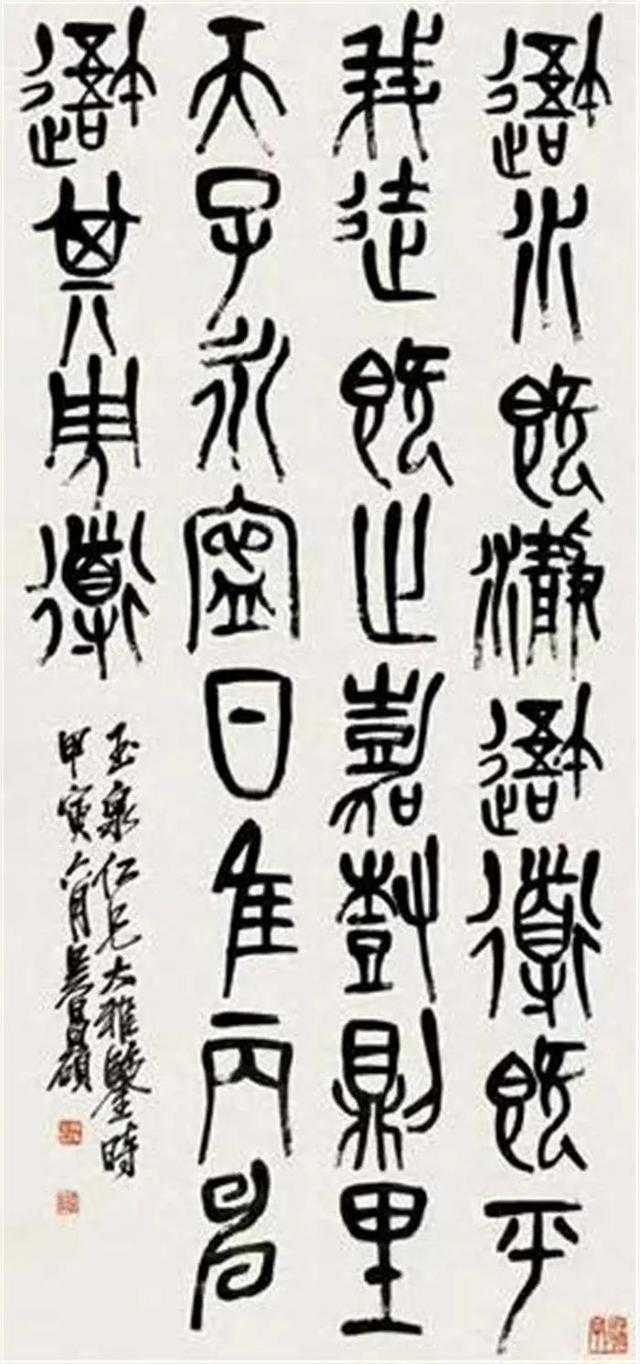 䢩水既瀞䢩導既平
我徒既止嘉尌則里
天子永寍日隹丙申
䢩其用導
玉泉仁兄大雅鑒時
甲寅六月吳昌碩